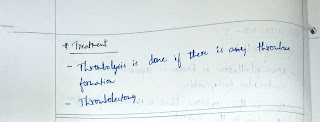 * Treatment
- Thrombolysis is done if there is any thrombus
formation
- Thrombolectomy